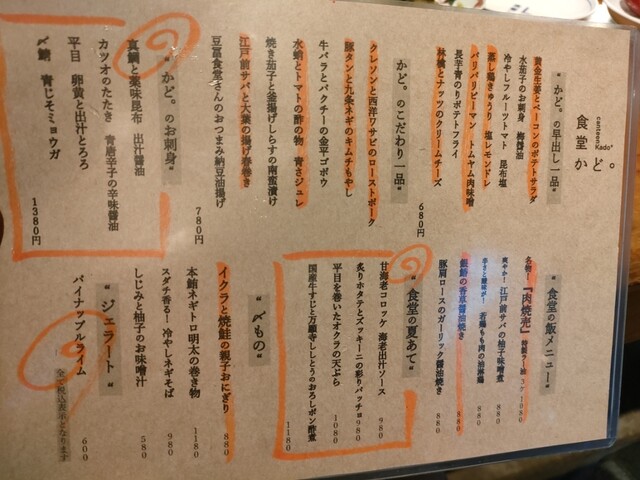 canteen Kado°
食堂かど。
"かど。の早出し一品"
黄金生姜とベーコンのポテトサラダ
水茄子のお刺身 梅醤油
冷やしフルーツトマト 昆布塩
蒸し鶏きゅうり 塩レモンドレ
バリバリピーマン トムヤム肉味噌
長芋青のりポテトフライ
林檎とナッツのクリームチーズ
680円
"かど。のこだわり一品"
クレソンと西洋ワサビのローストポーク
豚タンと九条ネギのキムチもやし
牛バラとパクチーの金平ゴボウ
水蛸とトマトの酢の物 青さジュレ
焼き茄子と釜揚げしらすの南蛮漬け
江戸前サバと大葉の揚げ春巻き
豆冨食堂さんのおつまみ納豆油揚げ
780円
"かど。のお刺身"
真鯛と薬味昆布 出汁醤油
カツオのたたき 青唐辛子の辛味醤油
平目 卵黄と出汁とろろ
〆鯖 青じそミョウガ
1380円
"食堂の飯メニュー"
名物!『肉焼売』特製ラー油 3ケ 1080
爽やか!江戸前サバの柚子味噌煮 880
辛さと酸味が! 若鶏もも肉の油淋鶏 880
銀鮭の香草醤油焼き 880
豚肩ロースのガーリック醤油焼き 880
"食堂の夏あて"
甘海老コロッケ 海老出汁ソース 980
炙りホタテとズッキーニの彩りパッチョ 980
平目を巻いたオクラの天ぷら 1080
国産牛すじと万願寺ししとうのおろしポン酢煮 1180
"〆もの"
イクラと焼鮭の親子おにぎり 880
本鮪ネギトロ明太の巻き物 1180
スダチ香る!冷やしネギそば 980
しじみと柚子のお味噌汁 580
"ジェラート"
パイナップルライム 600
全て税込表示となります